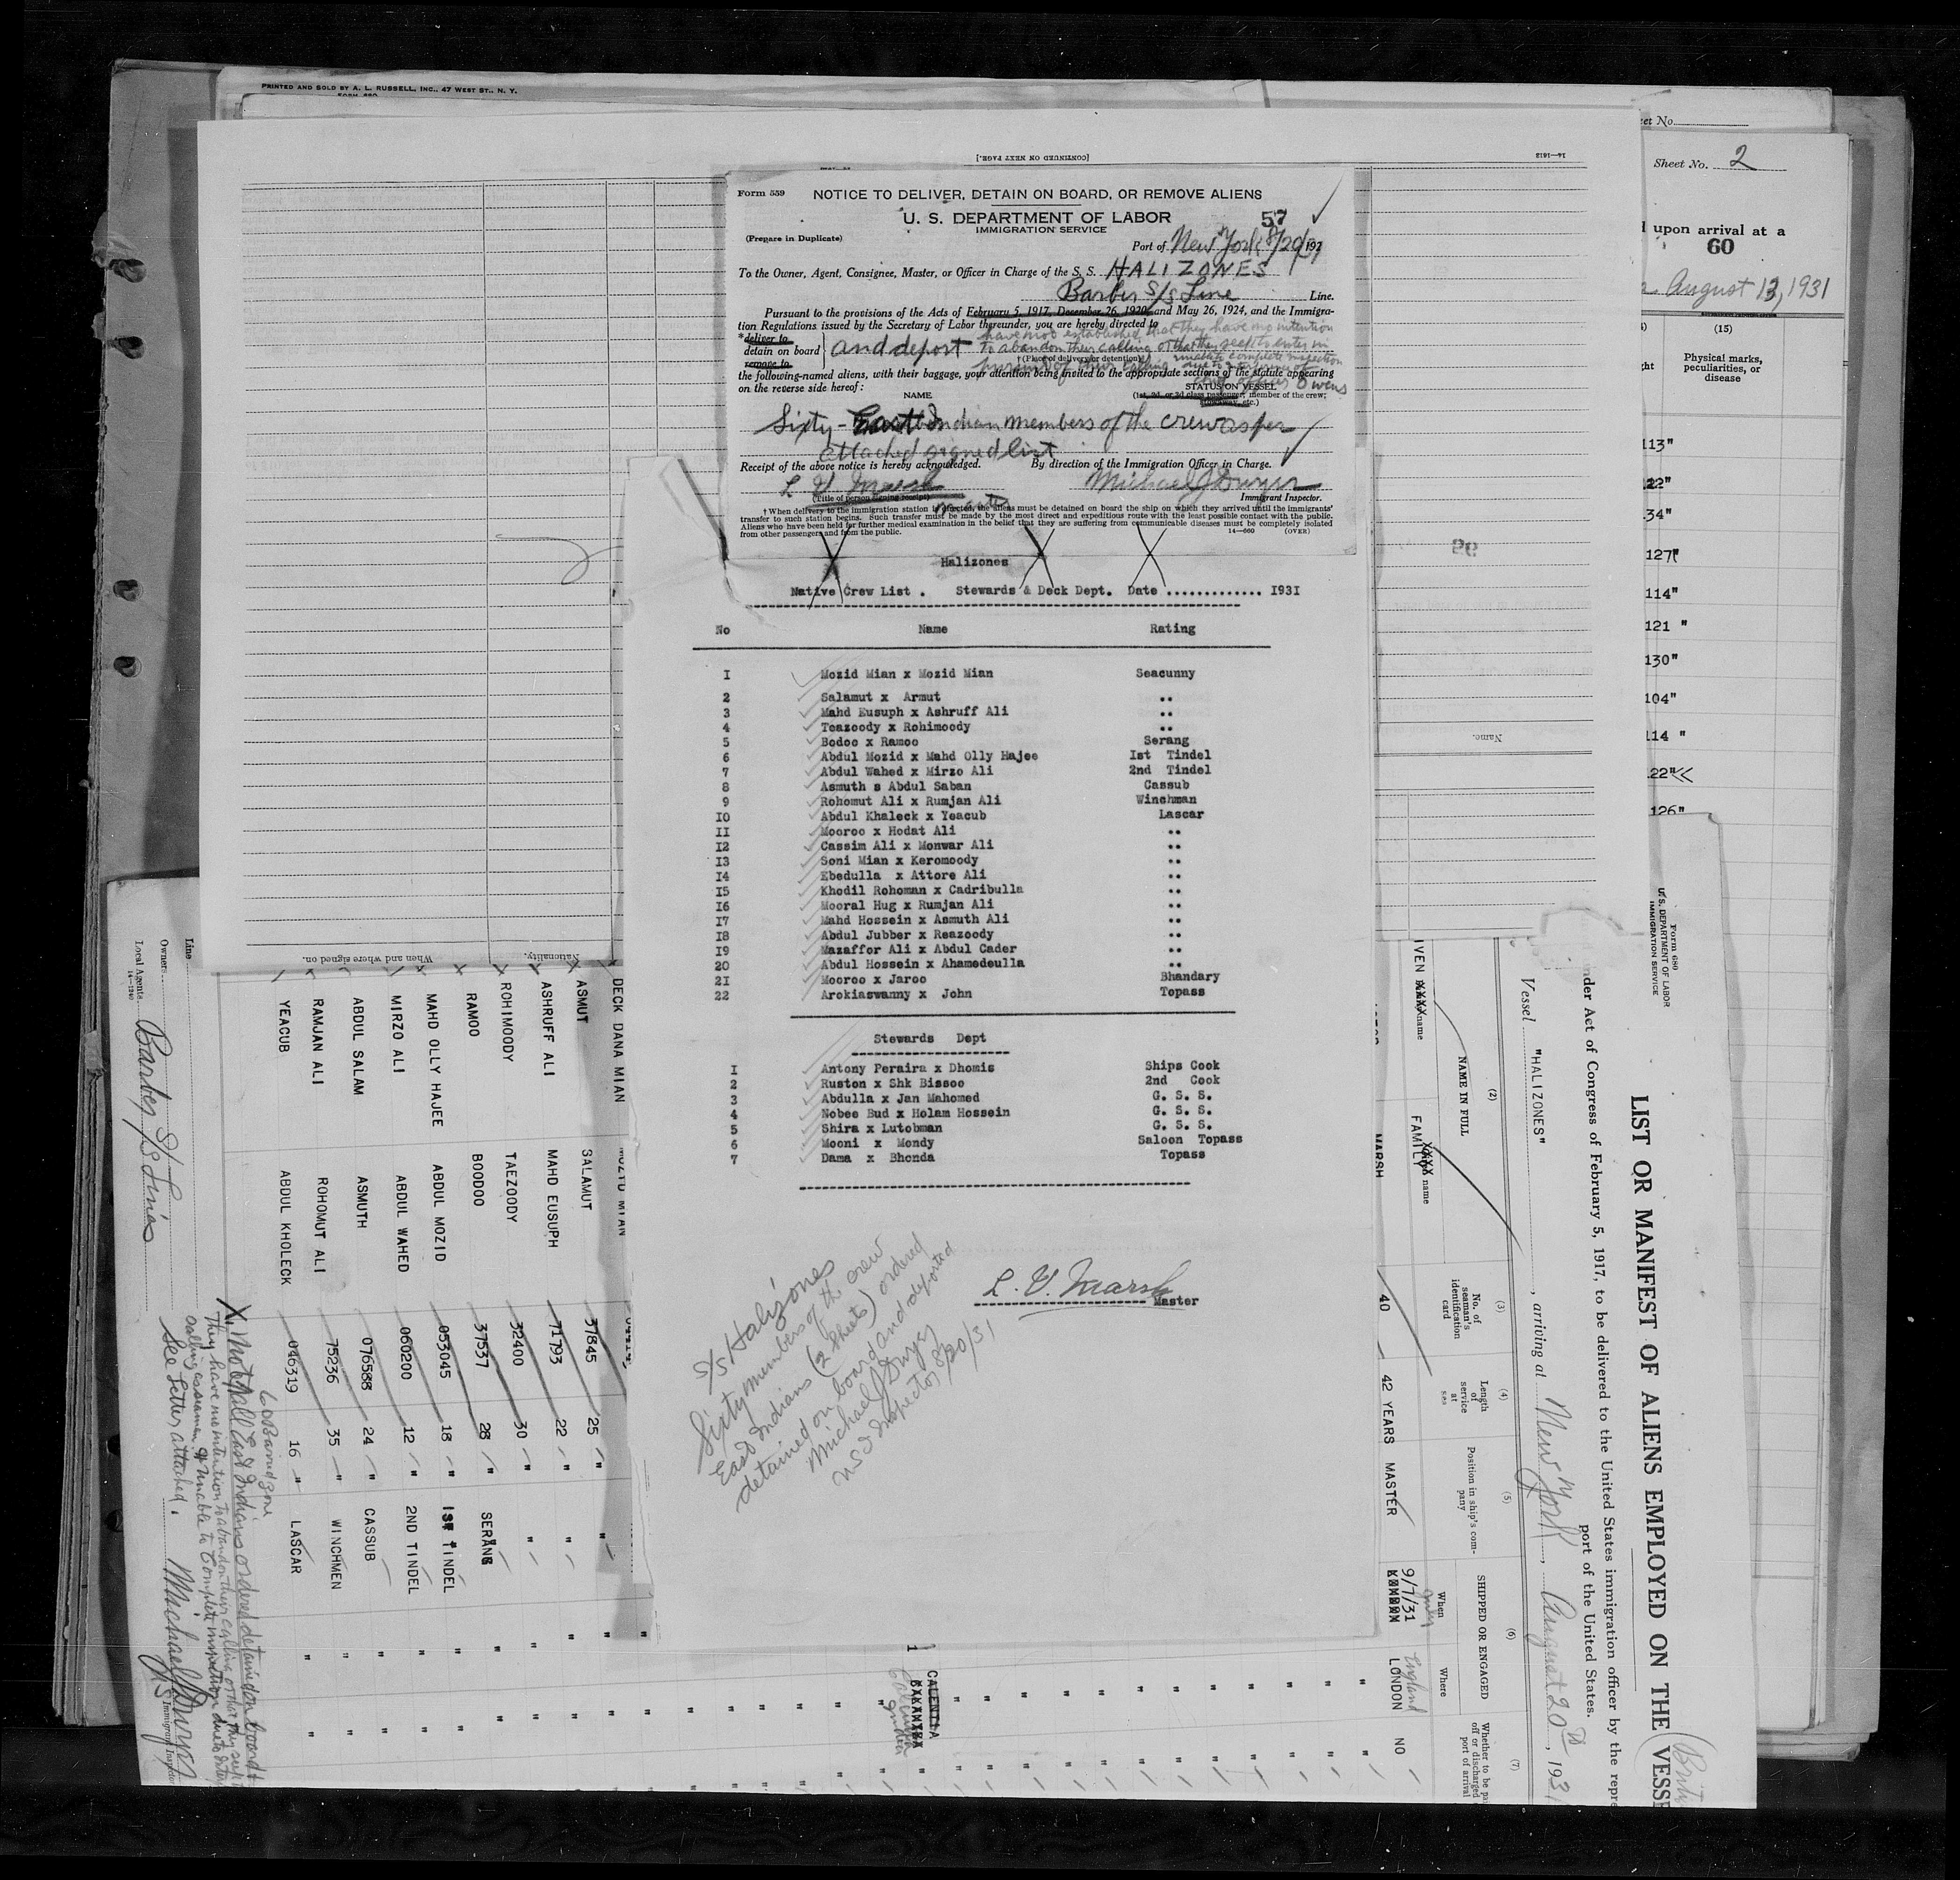 PRINTED AND SOLD BY A. L. RUSSELL, INC., 47 WEST ST., N. Y.
[CONTINUED ON NEXT PAGE.]
14—1613
Sheet No. 2
upon arrival at a
60
August 13, 1931
(15)
Physical marks, peculiarities, or disease
113"
34"
127"
114"
121 "
130"
104"
114 "
22"
126"
Form 559
NOTICE TO DELIVER, DETAIN ON BOARD, OR REMOVE ALIENS
U. S. DEPARTMENT OF LABOR
57
IMMIGRATION SERVICE
(Prepare in Duplicate)
Port of New York 8/20/31
To the Owner, Agent, Consignee, Master, or Officer in Charge of the S. S. HALIZONES
Barber S/S Line Line.
Pursuant to the provisions of the Acts of February 5, 1917, December 26, 1920, and May 26, 1924, and the Immigra-
tion Regulations issued by the Secretary of Labor thereunder, you are hereby directed to
have not established that they have no intention
*deliver to
detain on board and deport to abandon their calling or that they seek to enter in
remove to
†(Place of delivery or detention)
pursuit of their calling unable to complete inspection
the following-named aliens, with their baggage, your attention being invited to the appropriate sections of the statute appearing
on the reverse side hereof:
NAME
STATUS ON VESSEL
(1st, 2d, or 3d class passenger; member of the crew; stowaway, etc.)
Sixty - East Indian members of the crew as per
attached signed list
Receipt of the above notice is hereby acknowledged. By direction of the Immigration Officer in Charge.
L V Marsh Michael J Dwyer
(Title of person signing receipt) Immigrant Inspector.
†When delivery to the immigration station is directed, the aliens must be detained on board the ship on which they arrived until the immigrants'
transfer to such station begins. Such transfer must be made by the most direct and expeditious route with the least possible contact with the public.
Aliens who have been held for further medical examination in the belief that they are suffering from communicable diseases must be completely isolated
from other passengers and from the public. 14—660 (OVER)
Halizones
Native Crew List . Stewards & Deck Dept. Date ............. I93I
No Name Rating
I Mozid Mian x Mozid Mian Seacunny
2 Salamut x Armut ..
3 Mahd Eusuph x Ashruff Ali ..
4 Teazoody x Rohimoody ..
5 Bodoo x Ramoo Serang
6 Abdul Mozid x Mahd Olly Hajee Ist Tindel
7 Abdul Wahed x Mirzo Ali 2nd Tindel
8 Asmuth s Abdul Saban Cassub
9 Rohomut Ali x Rumjan Ali Winchman
IO Abdul Khaleck x Yeacub Lascar
II Mooroo x Hodat Ali ..
I2 Cassim Ali x Monwar Ali ..
I3 Soni Mian x Keromoody ..
I4 Ebedulla x Attore Ali ..
I5 Khodil Rohoman x Cadribulla ..
I6 Mooral Hug x Rumjan Ali ..
I7 Mahd Hossein x Asmuth Ali ..
I8 Abdul Jubber x Reazoody ..
I9 Mazaffor Ali x Abdul Cader ..
20 Abdul Hossein x Ahamedeulla ..
2I Mooroo x Jaroo Bhandary
22 Arokiaswanny x John Topass
Stewards Dept
I Antony Peraira x Dhomis Ships Cook
2 Ruston x Shk Bissoo 2nd Cook
3 Abdulla x Jan Mahomed G. S. S.
4 Nobee Bud x Holam Hossein G. S. S.
5 Shira x Lutobman G. S. S.
6 Mooni x Mondy Saloon Topass
7 Dama x Bhonda Topass
L. V. Marsh
Master
S/S Halizones
Sixty members of the crew
East Indians (2 sheets) ordered
detained on board and deported
Michael J Dwyer
US Inspector 8/20/31
Name.
Nationality.
When and where signed on.
Form 680
U. S. DEPARTMENT OF LABOR
IMMIGRATION SERVICE
LIST OR MANIFEST OF ALIENS EMPLOYED ON THE VESSE
under Act of Congress of February 5, 1917, to be delivered to the United States immigration officer by the repre
port of the United States.
Vessel "HALIZONES", arriving at New York, August 20, 1931
(2) (3) (4) (5) (6) (7)
NAME IN FULL
FAMILY name
No. of seaman's identification card
Length of service at sea
Position in ship's company
SHIPPED OR ENGAGED
When
Where
MARSH 40 42 YEARS MASTER 9/7/31 LONDON NO
England
DECK DANA MIAN
ASMUT SALAMUT 37845 25 "
ASHRUFF ALI MAHD EUSUPH 71793 22 "
ROHIMOODY TAEZOODY 32400 30 "
RAMOO BOODOO 37537 28 " SERANG
MAHD OLLY HAJEE ABDUL MOZID 053045 18 " 1ST TINDEL
MIRZO ALI ABDUL WAHED 060200 12 " 2ND TINDEL
ABDUL SALAM ASMUTH 076588 24 " CASSUB
RAMJAN ALI ROHOMUT ALI 75236 35 " WINCHMEN
YEACUB ABDUL KHOLECK 046319 16 " LASCAR
Calcutta
India
X. Note, all East Indians ordered detained on board &
They have no intention to abandon their calling or that they seek
calling as seamen & unable to complete inspection due to
See Letter attached.
Michael J Dwyer
Immigrant Inspector
Line
Owners
Local Agents Barber S/S Lines
14—1240